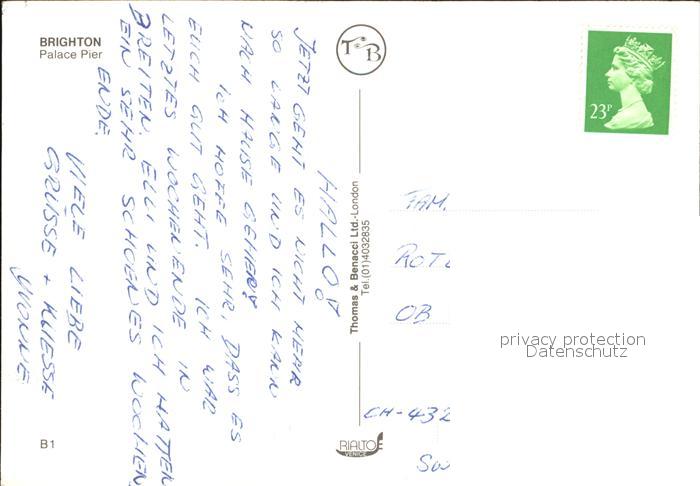 BRIGHTON
Palace Pier
HALLO!
JETZT GEHT ES NICHT MEHR
SO LANGE UND ICH KANN
NACH HAUSE GEHEN.
ICH HOFFE SEHR, DASS ES
EUCH GUT GEHT. ICH WAR
LETZTES WOCHENENDE IN
BREITEN. ELLI UND ICH HATTEN
EIN SEHR SCHOENES WOCHEN
ENDE.
VIELE LIEBE
GRÜSSE + KUESSE
YVONNE
B1
TB
Thomas & Benacci Ltd.-London
Tel.(01)4032835
RIALTO
VENICE
23P
FAM.
ROTL
OB
CH-432
SW
privacy protection
Datenschutz